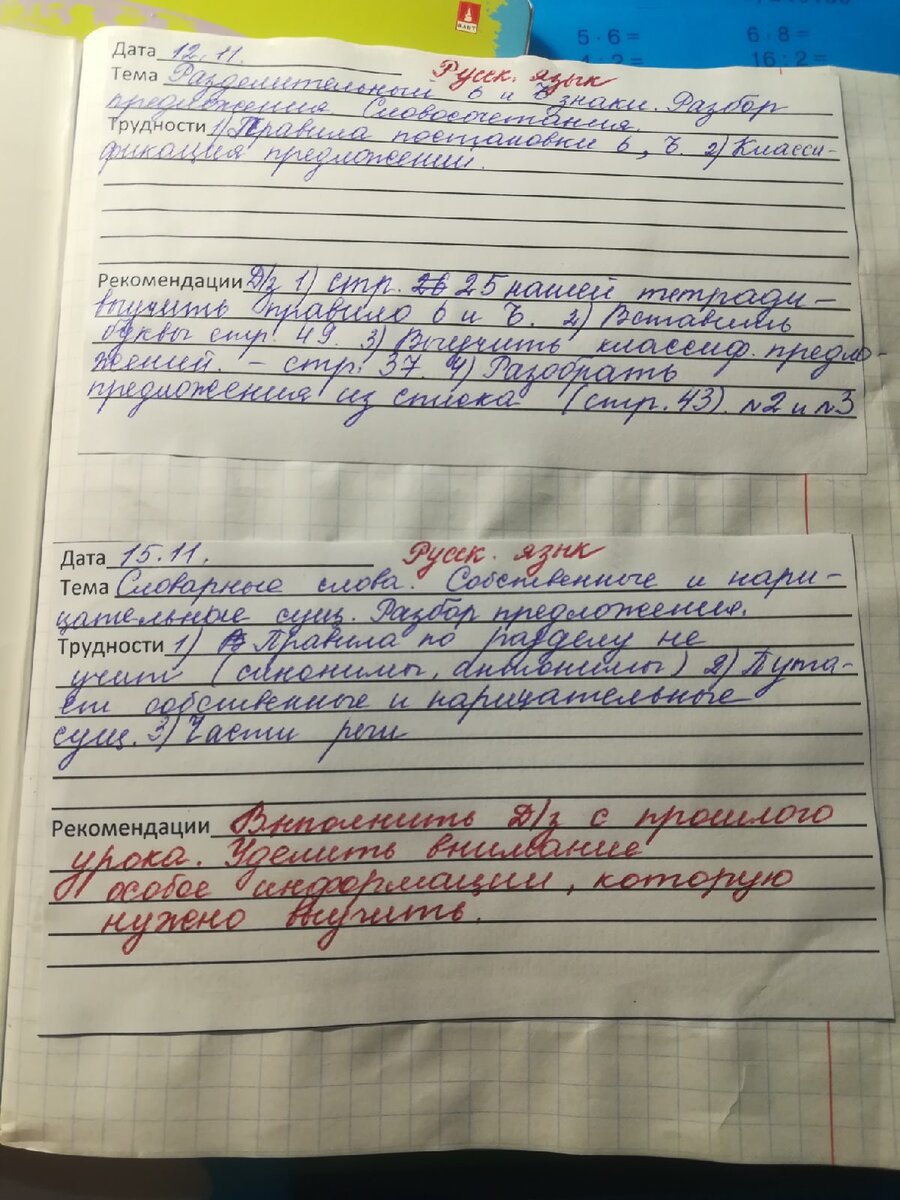 ВАКТ
5 · 6 =
6 · 8 =
16 : 2 =
Дата 12.11.
Русск. язык
Тема Разделительный ь и ъ знаки. Разбор
предложения. Словосочетания.
Трудности 1) Правила постановки ь, ъ. 2) Класси-
фикация предложений.
Рекомендации Д/з 1) стр. 25 нашей тетради -
выучить правило ь и ъ. 2) Вставить
буквы стр. 49. 3) Выучить классиф. предло-
жений. - стр. 37. 4) Разобрать
предложения из списка (стр. 43). №2 и №3
Дата 15.11.
Русск. язык
Тема Словарные слова. Собственные и нари-
цательные сущ. Разбор предложения.
Трудности 1) Правила по разделу не
учит (синонимы, антонимы) 2) Пута-
ет собственные и нарицательные
сущ. 3) Части речи
Рекомендации Выполнить Д/з с прошлого
урока. Уделить внимание
особое информации, которую
нужно выучить.